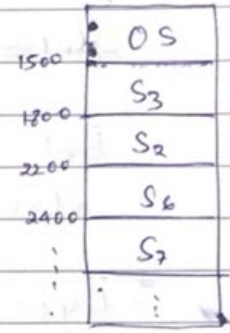 OS
1500
S3
1800
S2
2200
S6
2400
S7
⋮ ⋮